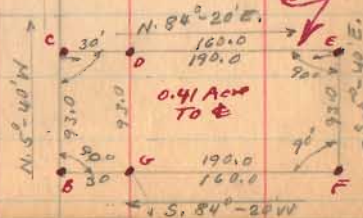 N. 84°-20'E.
C 30' D 160.0 E
190.0 90°
N. 5°-40'W
93.0
93.0
0.41 Acre
TO ℄
93.0
-40'E.
90° G 190.0 90°
B 30 160.0 F
S. 84°-20'W